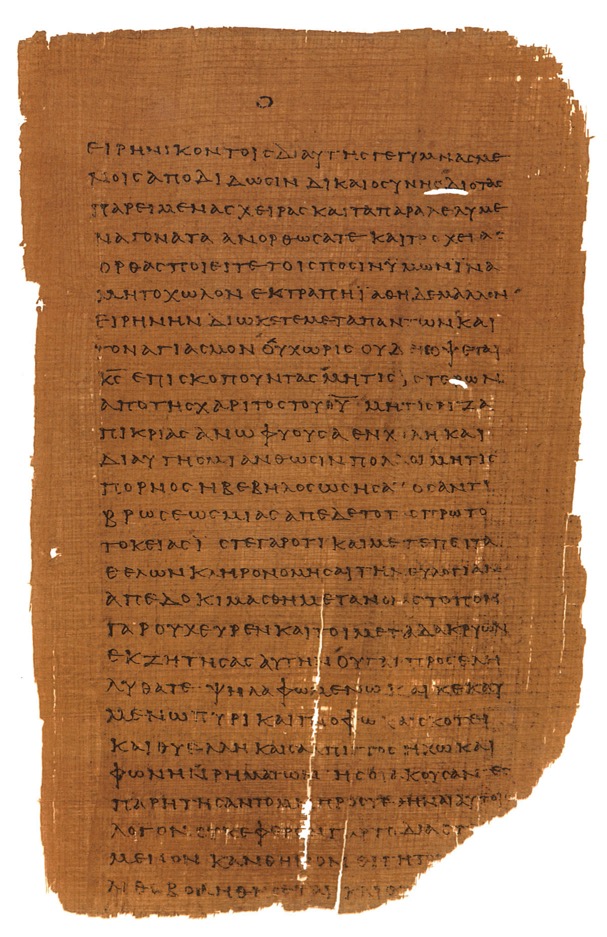 ΕΙΡΗΝΙΚΟΝΤΟΙϹΔΙΑΥΤΗϹΓΕΓΥΜΝΑϹΜΕ
ΝΟΙϹΑΠΟΔΙΔΩϹΙΝ ΔΙΚΑΙΟϹΥΝΗϹΔΙΟΤΑϹ
ΠΑΡΕΙΜΕΝΑϹΧΕΙΡΑϹΚΑΙΤΑΠΑΡΑΛΕΛΥΜΕ
ΝΑΓΟΝΑΤΑ ΑΝΟΡΘΩϹΑΤΕ ΚΑΙΤΡΟΧΕΙΑϹ
ΟΡΘΑϹΠΟΙΕΙΤΕΤΟΙϹΠΟϹΙΝΫΜΩΝΪΝΑ
ΜΗΤΟΧΩΛΟΝ ΕΚΤΡΑΠΗΪΑΘΗΔΕΜΑΛΛΟΝ
ΕΙΡΗΝΗΝ ΔΙΩΚΕΤΕΜΕΤΑΠΑΝΤΩΝΚΑΙ
ΤΟΝΑΓΙΑϹΜΟΝ ΟΥΧΩΡΙϹ ΟΥΔΕΙϹΟΨΕΤΑΙ
Κ̅Ϲ̅ ΕΠΙϹΚΟΠΟΥΝΤΑϹΜΗΤΙϹΫϹΤΕΡΩΝ
ΑΠΟΤΗϹΧΑΡΙΤΟϹΤΟΥΘ̅Υ̅ ΜΗΤΙϹΡΙΖΑ
ΠΙΚΡΙΑϹΑΝΩ ΦΥΟΥϹΑΕΝΧΟΛΗΚΑΙ
ΔΙΑΥΤΗϹΜΙΑΝΘΩϹΙΝΠΟΛΛΟΙΜΗΤΙϹ
ΠΟΡΝΟϹΗΒΕΒΗΛΟϹΩϹΗϹΑΥΟϹΑΝΤΙ
ΒΡΩϹΕΩϹΜΙΑϹΑΠΕΔΕΤΟΤΑϹΠΡΩΤΟ
ΤΟΚΕΙΑϹΪϹΤΕΓΑΡΟΤΙ ΚΑΙΜΕΤΕΠΕΙΤΑ
ΘΕΛΩΝ ΚΛΗΡΟΝΟΜΗϹΑΙΤΗΝΕΥΛΟΓΙΑΝ
ΑΠΕΔΟΚΙΜΑϹΘΗΜΕΤΑΝΟΙΑϹΤΟΠΟΝ
ΓΑΡΟΥΧΕΥΡΕΝΚΑΙΤΟΙΜΕΤΑΔΑΚΡΥΩΝ
ΕΚΖΗΤΗϹΑϹΑΥΤΗΝΟΥΓΑΡΠΡΟϹΕΛΗ
ΛΥΘΑΤΕ ΨΗΛΑΦΩΜΕΝΩΚΑΙΚΕΚΑΥ
ΜΕΝΩΠΥΡΙ ΚΑΙΓΝΟΦΩ ΚΑΙϹΚΟΤΕΙ
ΚΑΙΘΥΕΛΛΗ ΚΑΙϹΑΛΠΙΓΓΟϹ ΗΧΩΚΑΙ
ΦΩΝΗΝΡΗΜΑΤΩΝ ΗϹΟΙΑΚΟΥϹΑΝΤΕϹ
ΠΑΡΗΤΗϹΑΝΤΟΜΗΠΡΟϹΤΕΘΗΝΑΙΑΥΤΟΙϹ
ΛΟΓΟΝ ΟΥΚΕΦΕΡΟΝΓΑΡΤΟΔΙΑϹΤ
ΜΕΝΟΝ ΚΑΝΘΗΡΙΟΝ ΘΙΓΗΤΟΥ
ΛΙΘΟΒΟΛΗΘΗϹΕΤΑΙ ΚΑΙΟΥ